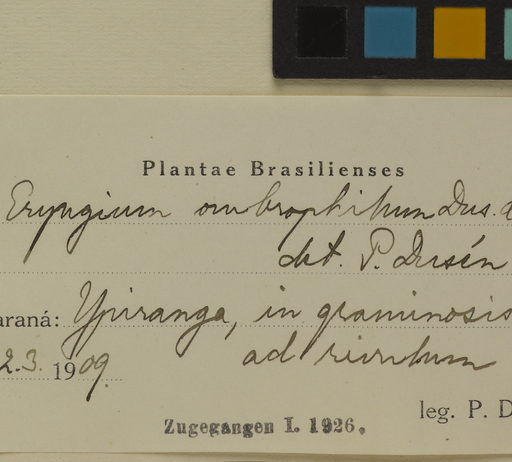 Plantae Brasilienses
Eryngium ombrophilum Dus.
det. P. Dusén
araná: Ypiranga, in graminosis
2.3. 1909. ad rivulum
leg. P. D
Zugegangen I. 1926.